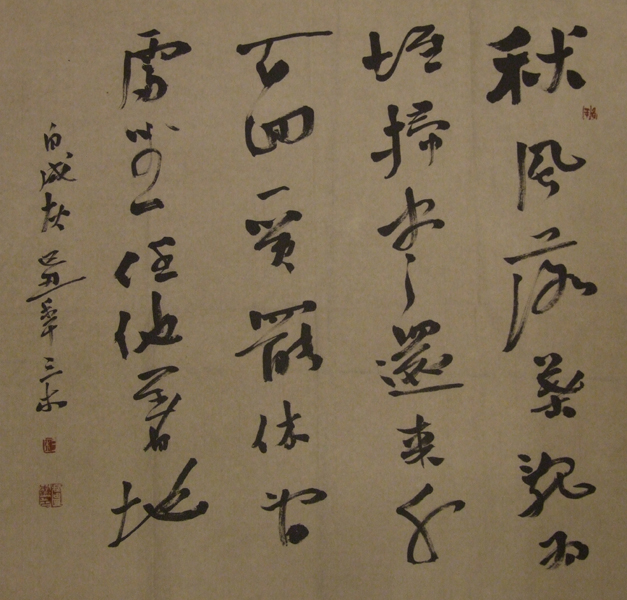 秋風落葉亂為
堆掃盡還來千
百回一笑罷休閒
處坐任他著地
自成灰 己丑年三木